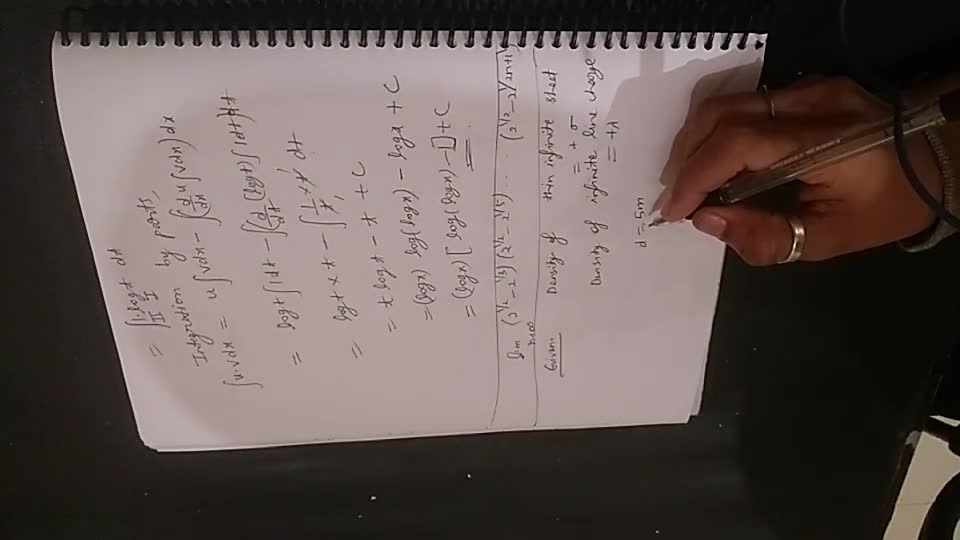 = ∫1·log t dt
II I
Integration by parts,
∫u·v dx = u∫v dx − ∫(d/dx u ∫v dx) dx
= log t ∫1 dt − ∫(d/dt (log t) ∫1 dt) dt
= log t × t − ∫1/t × t dt
= t log t − t + C
= (log x) log(log x) − log x + C
= (log x) [log(log x) − 1] + C
lim n→∞ (2^1/2 − 2^1/3) (2^1/2 − 2^1/5) ..... (2^1/2 − 2^1/2n+1)
Given: Density of thin infinite sheet
= + σ
Density of infinite line charge
= +λ
d = 5m